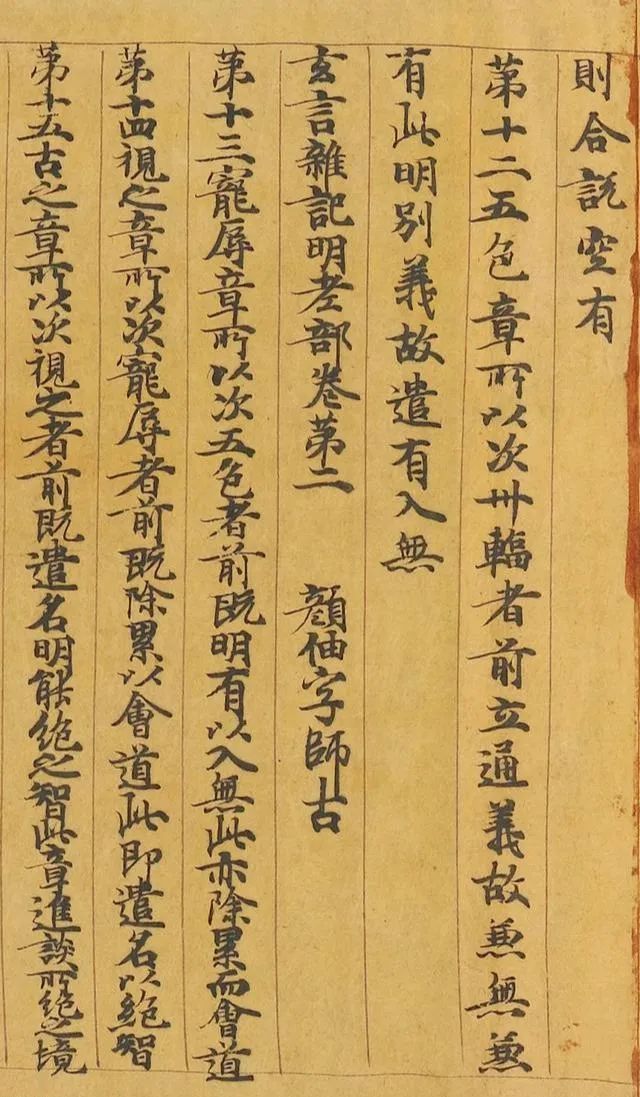 則合説空有
第十二五色章所以次卅輻者前立通義故兼無兼
有此明別義故遣有入無
玄言雜記明老部卷第二 顏伷字師古
第十三寵辱章所以次五色者前既明有以入無此亦除累而會道
第十四視之章所以次寵辱者前既除累以會道此即遣名以絶智
第十五古之章所以次視之者前既遣名明能絶之智此章進談所絶之境